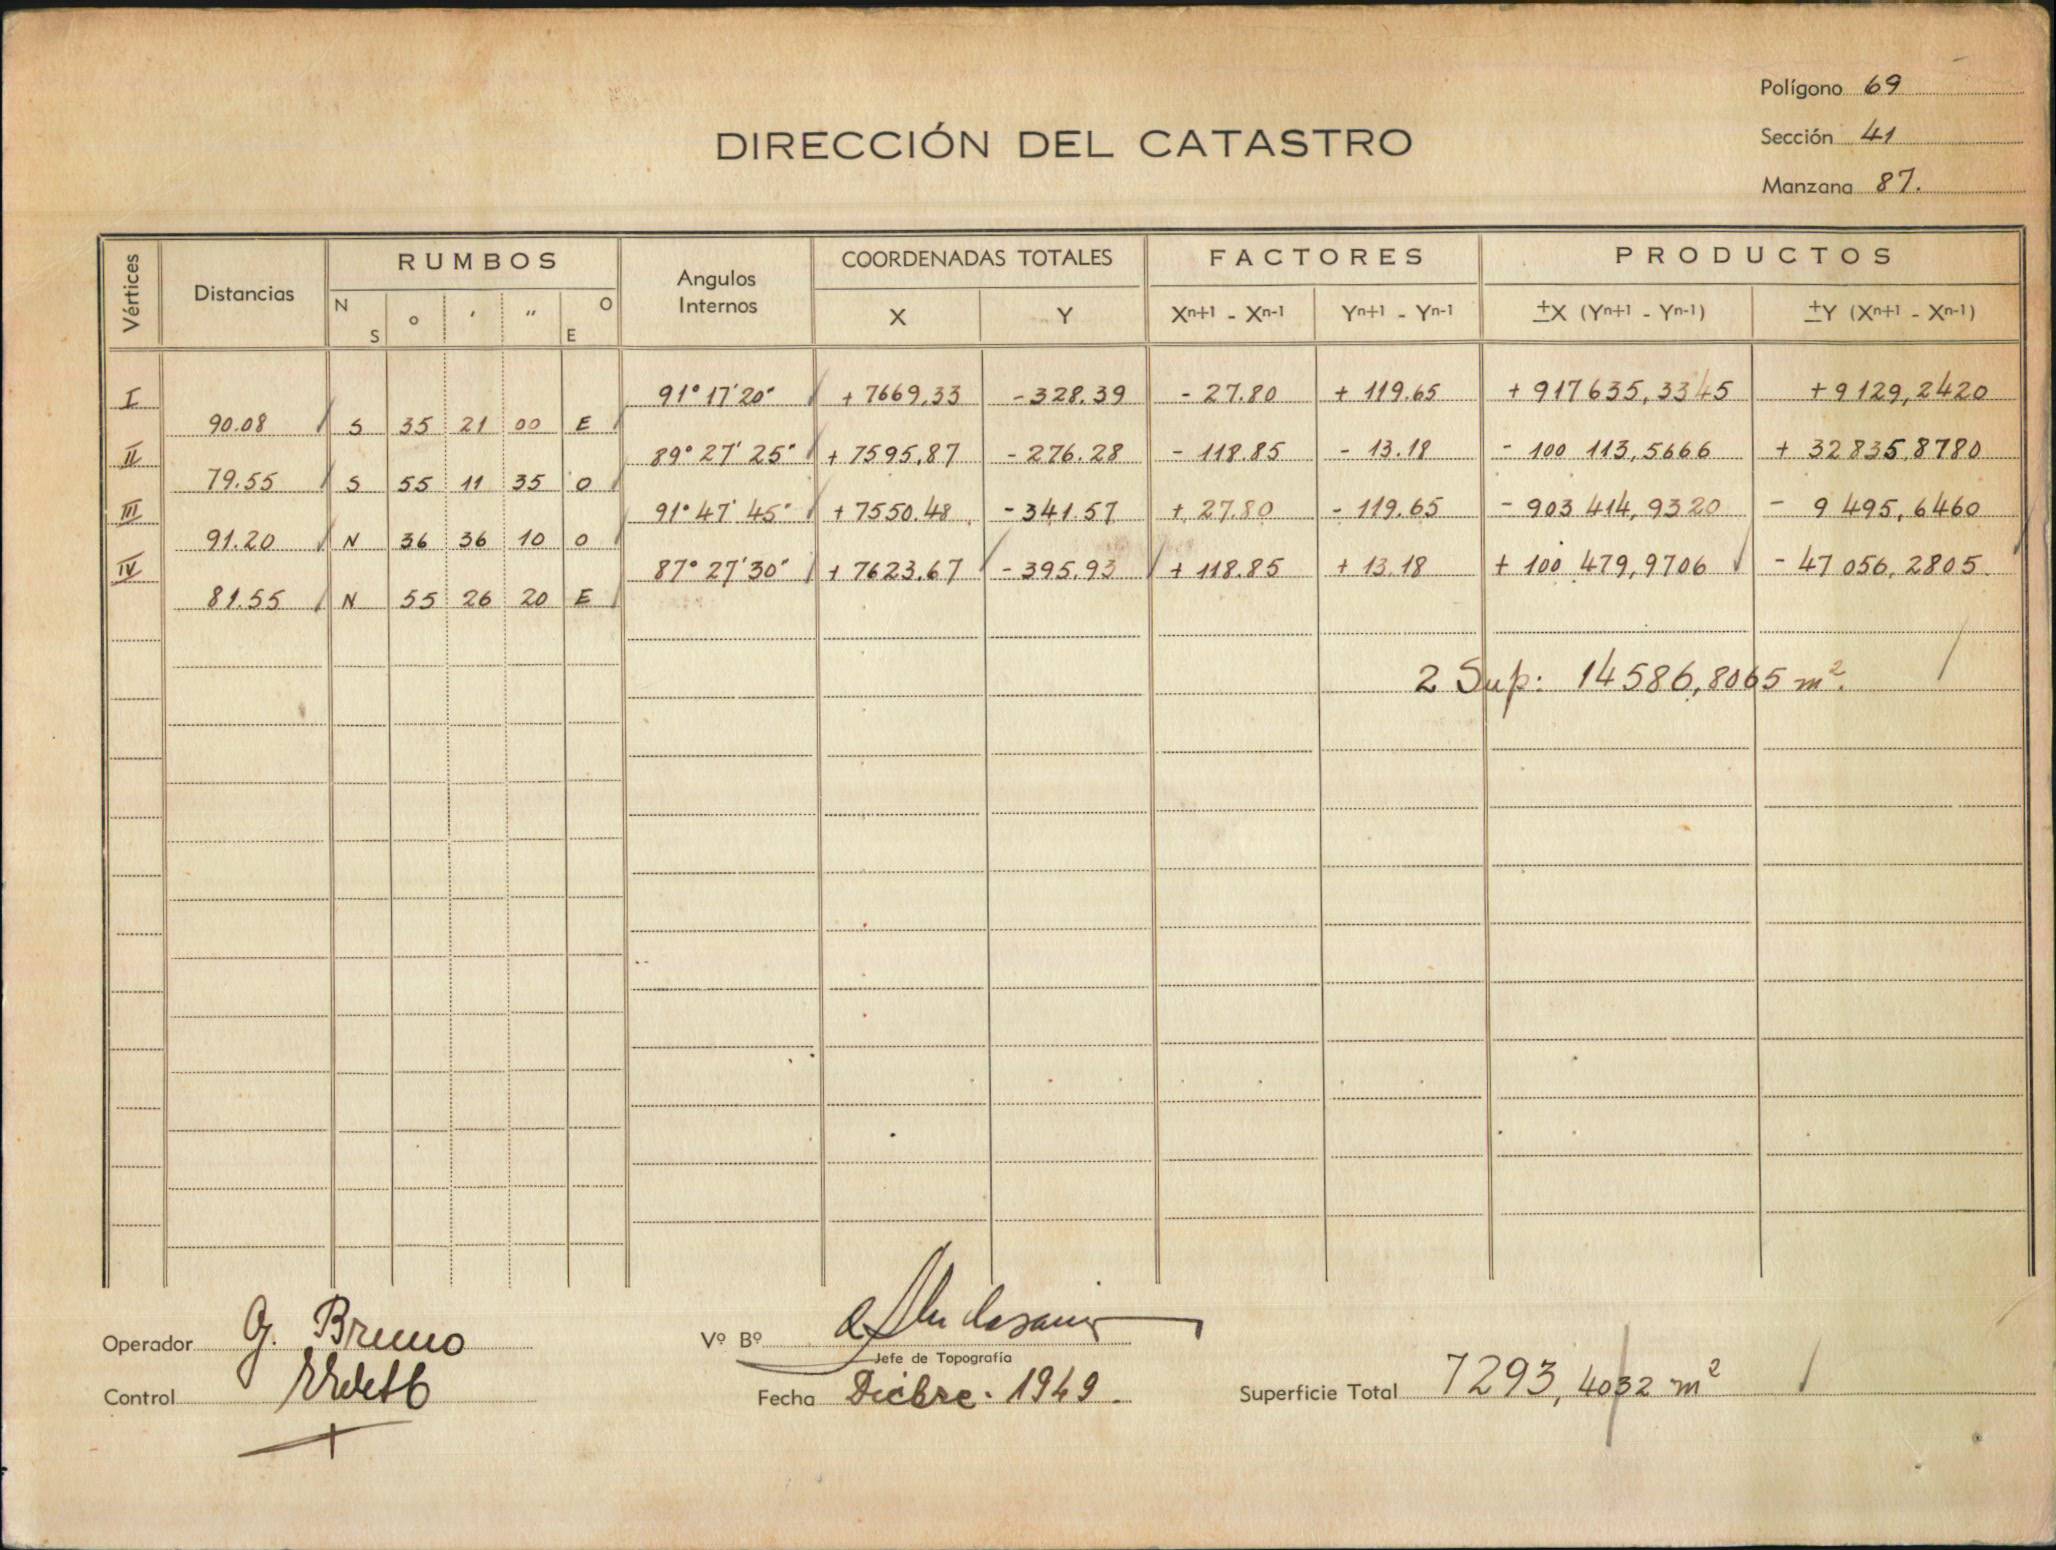 Polígono 69
DIRECCIÓN DEL CATASTRO
Sección 41
Manzana 87.
Vértices Distancias RUMBOS Angulos Internos COORDENADAS TOTALES FACTORES PRODUCTOS
N S o ' " O E X Y Xn+1 - Xn-1 Yn+1 - Yn-1 ±X (Yn+1 - Yn-1) ±Y (Xn+1 - Xn-1)
I 91° 17' 20" + 7669,33 - 328.39 - 27.80 + 119.65 + 917635,3345 + 9129,2420
90.08 S 35 21 00 E
II 89° 27' 25" + 7595,87 - 276.28 - 118.85 - 13.18 - 100 113,5666 + 32835,8780
79.55 S 55 11 35 O
III 91° 47' 45" + 7550.48 - 341.57 + 27.80 - 119.65 - 903 414,9320 - 9 495,6460
91.20 N 36 36 10 O
IV 87° 27' 30" + 7623,67 - 395,93 + 118.85 + 13.18 + 100 479,9706 - 47 056,2805
81.55 N 55 26 20 E
2 Sup: 14586,8065 m².
Operador G. Bruno
Vº Bº
Jefe de Topografía
Control
Fecha Dicbre. 1949.
Superficie Total 7293,4032 m²